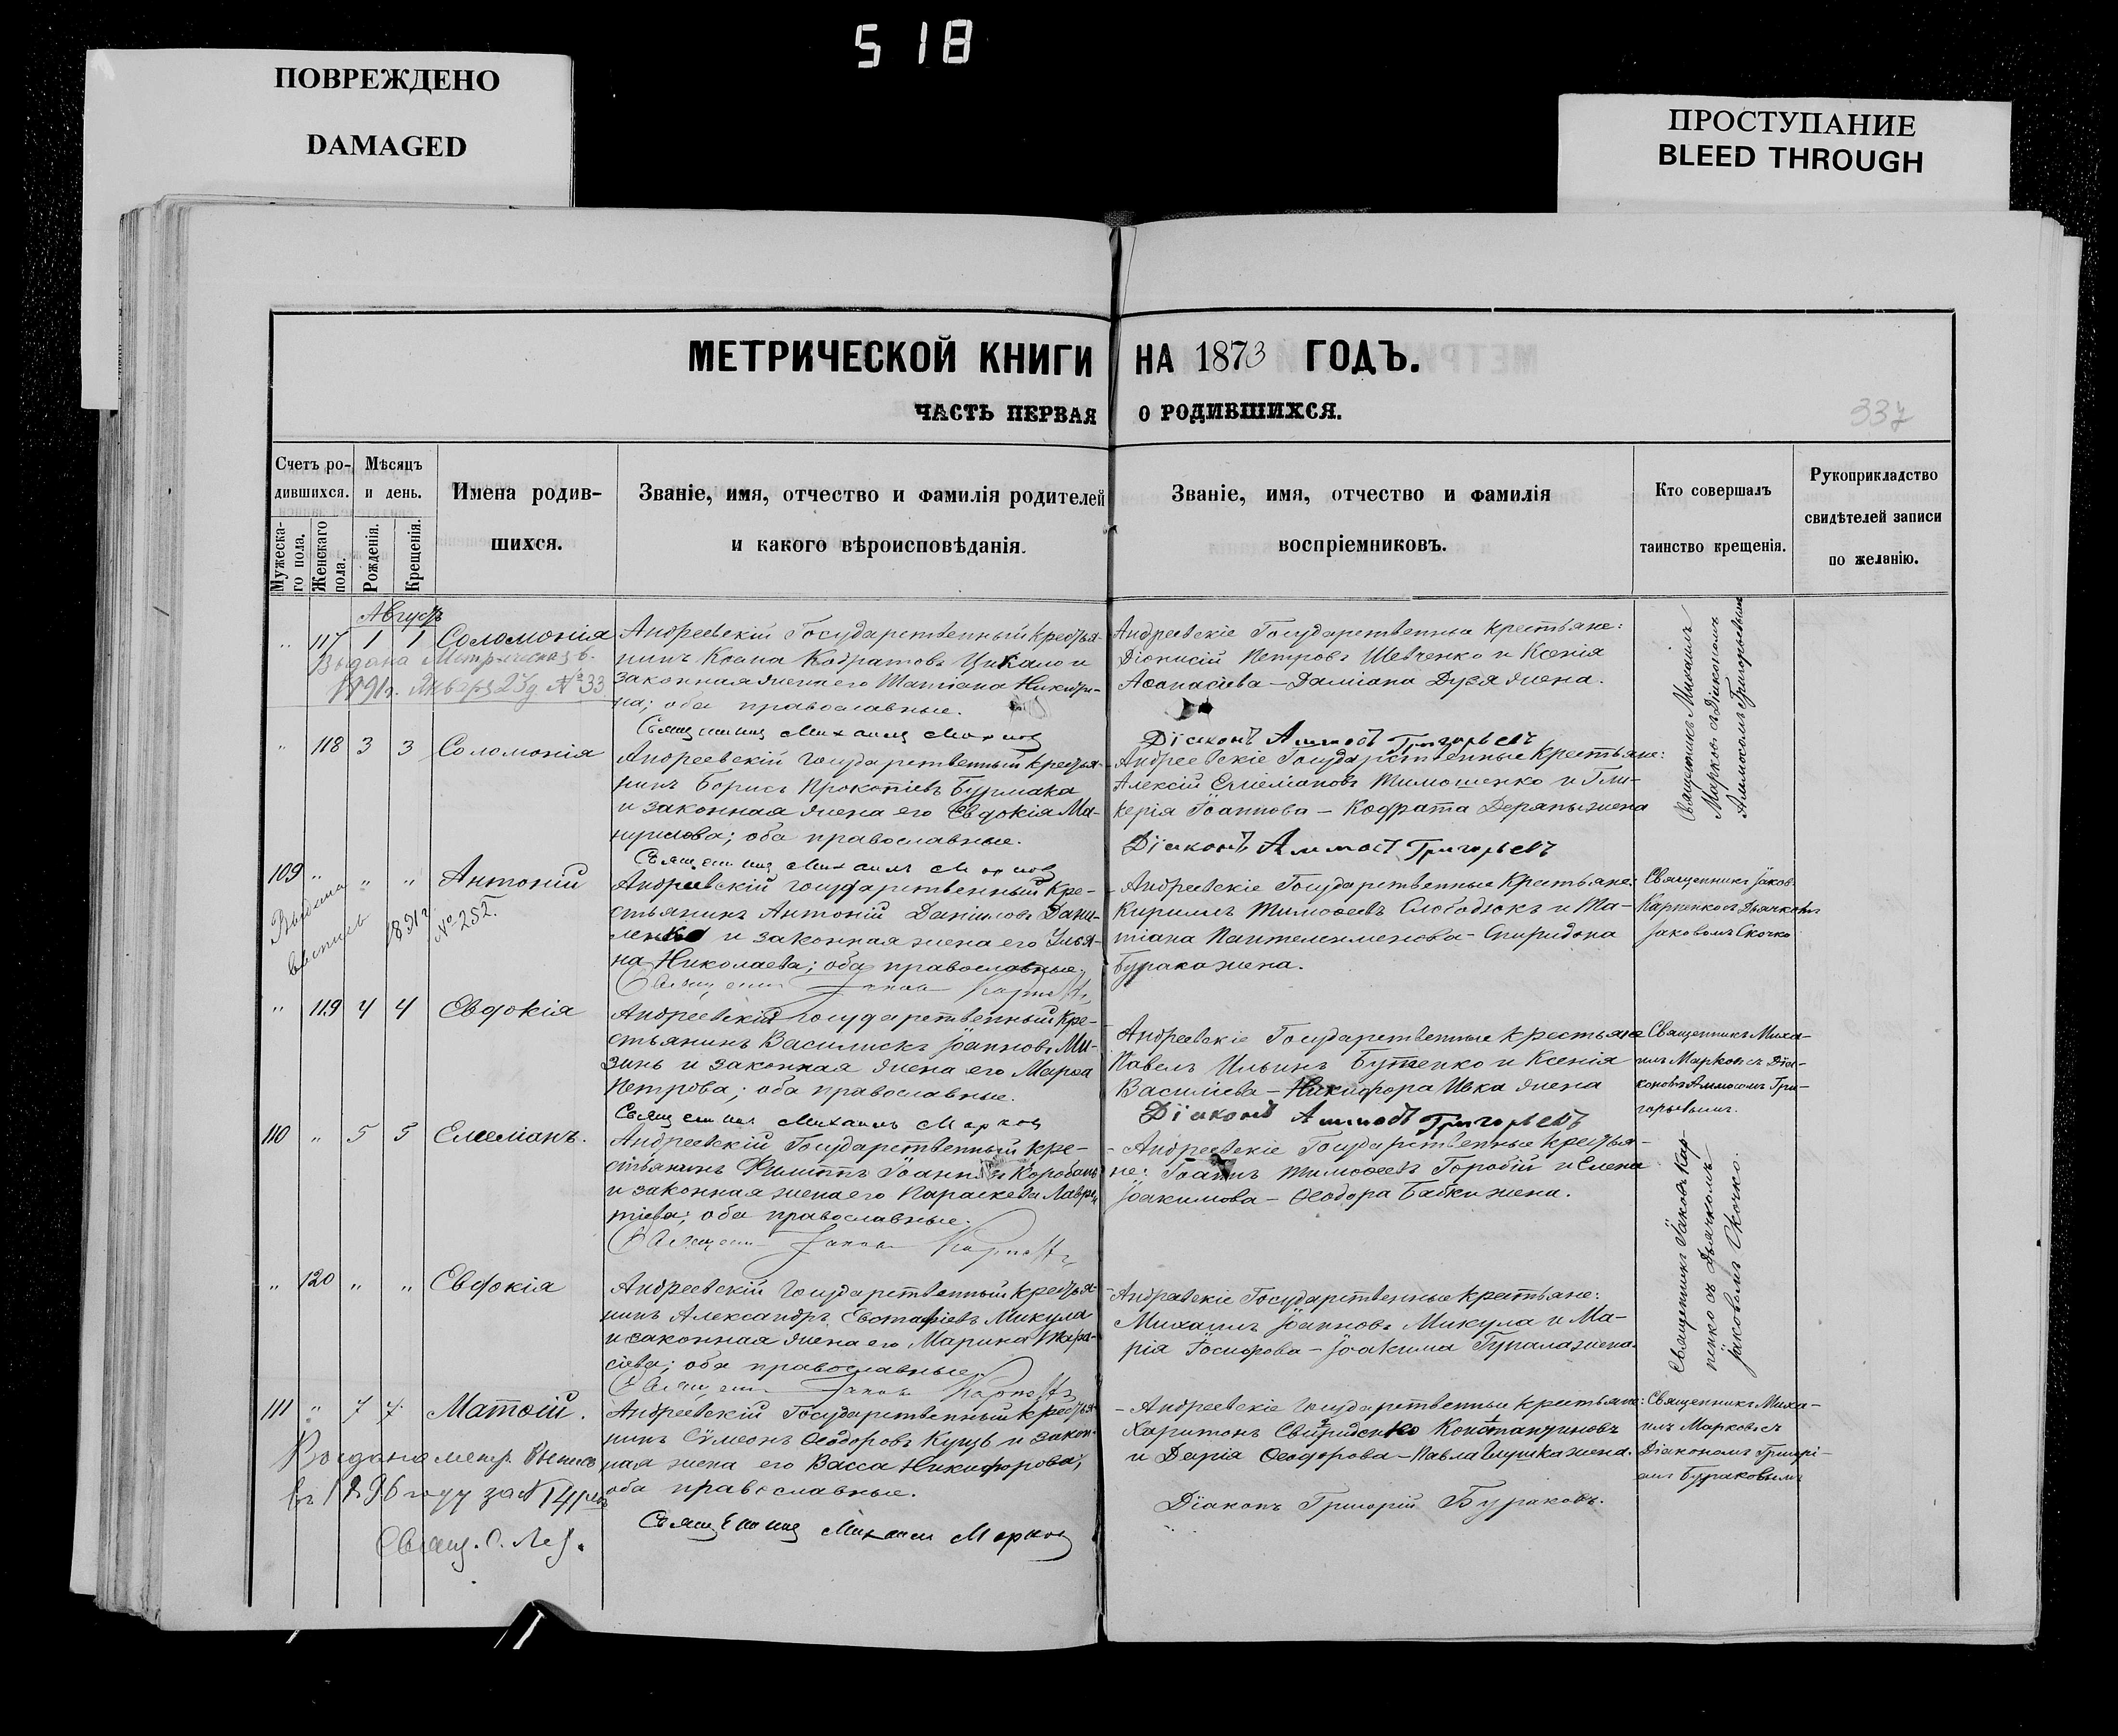 518
ПОВРЕЖДЕНО
DAMAGED
ПРОСТУПАНИЕ
BLEED THROUGH
МЕТРИЧЕСКОЙ КНИГИ НА 1873 ГОДЪ.
ЧАСТЬ ПЕРВАЯ О РОДИВШИХСЯ.
337
Счетъ ро-
дившихся.
Мужеска-
го пола.
Женскаго
пола.
Мѣсяцъ
и день.
Рожденія.
Крещенія.
Имена родив-
шихся.
Званіе, имя, отчество и фамилія родителей
и какого вѣроисповѣданія.
Званіе, имя, отчество и фамилія
воспріемниковъ.
Кто совершалъ
таинство крещенія.
Рукоприкладство
свидѣтелей записи
по желанію.
Августъ
" 117 1 1 Соломонія
Выдана Метрическая в.
1891г. Января 23д №33
Андреевскій Государственный крестья-
нинъ Кодратовъ Цикало и
законная жена его Татіана Никитри-
на; оба православные.
Священникъ Михаилъ Марковъ
Андреевскіе Государственные крестьяне:
Діонисій Петровъ Шевченко и Ксенія
Аѳанасіева – Даміана Дузя жена.
Діаконъ Аммосъ Григорьевъ
Священникъ Михаилъ
Марковъ съ Діакономъ
Аммосомъ Григорьевымъ
" 118 3 3 Соломонія
Андреевскій государственный крестья-
нинъ Борисъ Прокопіевъ Бурмака
и законная жена его Евдокія Ма-
нуилова; оба православные.
Священникъ Михаилъ Марковъ
Андреевскіе Государственные крестьяне:
Алексій Емеліановъ Тимошенко и Гли-
керія Іоаннова – Кодрата Деряпы жена
Діаконъ Аммосъ Григорьевъ
109 " " " Антоній
Выдана
выпись 1891г.
№ 252.
Андреевскій государственный кре-
стьянинъ Антоній Даніиловъ Дани-
ленко и законная жена его Улья-
на Николаева; оба православные.
Андреевскіе Государственные крестьяне:
Кириллъ Тимоѳеевъ Слободзокъ и Та-
тіана Пантелеимонова – Спиридона
Бурака жена.
Священникъ Іаковъ
Карпенко съ Дьячкомъ
Іаковомъ Скочко
" 119 4 4 Евдокія
Андреевскій государственный кре-
стьянинъ Василискъ Іоанновъ Ми-
зинь и законная жена его Марѳа
Петрова; оба православные.
Священникъ Михаилъ Марковъ
Андреевскіе Государственные крестьяне
Павелъ Ильинъ Бутенко и Ксенія
Василіева – Никифора Ивка жена
Діаконъ Аммосъ Григорьевъ
Священникъ Миха-
илъ Марковъ съ Діа-
кономъ Аммосомъ Гри-
горьевымъ.
110 " 5 5 Емеліанъ.
Андреевскій Государственный кре-
стьянинъ Филиппъ Іоанновъ Коробань
и законная жена его Параскева Лаврен-
тіева; оба православные.
– Андреевскіе Государственные крестья-
не: Іоаннъ Тимоѳеевъ Горобій и Елена
Іоакимова – Ѳеодора Бабки жена.
Священникъ Іаковъ Кар-
пенко съ Дьячкомъ
Іаковомъ Скочко.
" 120 " " Евдокія
Андреевскій государственный крестья-
нинъ Александръ Евстафіевъ Микула
и законная жена его Марина Тара-
сіева; оба православные.
– Андреевскіе Государственные крестьяне:
Михаилъ Іоанновъ Микула и Ма-
рія Іосифова – Іоакима Гупала жена.
111 " 7 7. Матѳій.
Выдана метр. выпись
въ 1896 году за №
Андреевскій Государственный крестья-
нинъ Сѵмеонъ Ѳеодоровъ Куцъ и закон-
ная жена его Васса Никифорова;
оба православные.
Священникъ Михаилъ Марковъ
– Андреевскіе государственные крестьяне:
Харитонъ Свириденко Константиновъ
и Дарія Ѳеодорова – Павла Глушка жена.
Діаконъ Григорій Бураковъ.
Священникъ Миха-
илъ Марковъ съ
Діакономъ Григорі-
емъ Бураковымъ